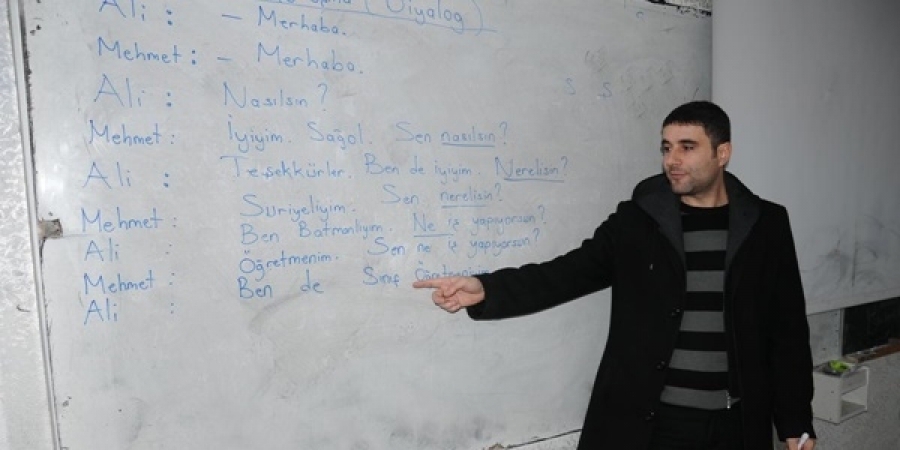 (Diyalog)
Ali : - Merhaba.
Mehmet : - Merhaba.
Ali : Nasılsın?
Mehmet : İyiyim. Sağol. Sen nasılsın?
Ali : Teşekkürler. Ben de iyiyim. Nerelisin?
Mehmet : Suriyeliyim. Sen nerelisin?
Ali : Ben Batmanlıyım. Ne iş yapıyorsun?
Mehmet : Öğretmenim. Sen ne iş yapıyorsun?
Ali : Ben de Sınıf
S S